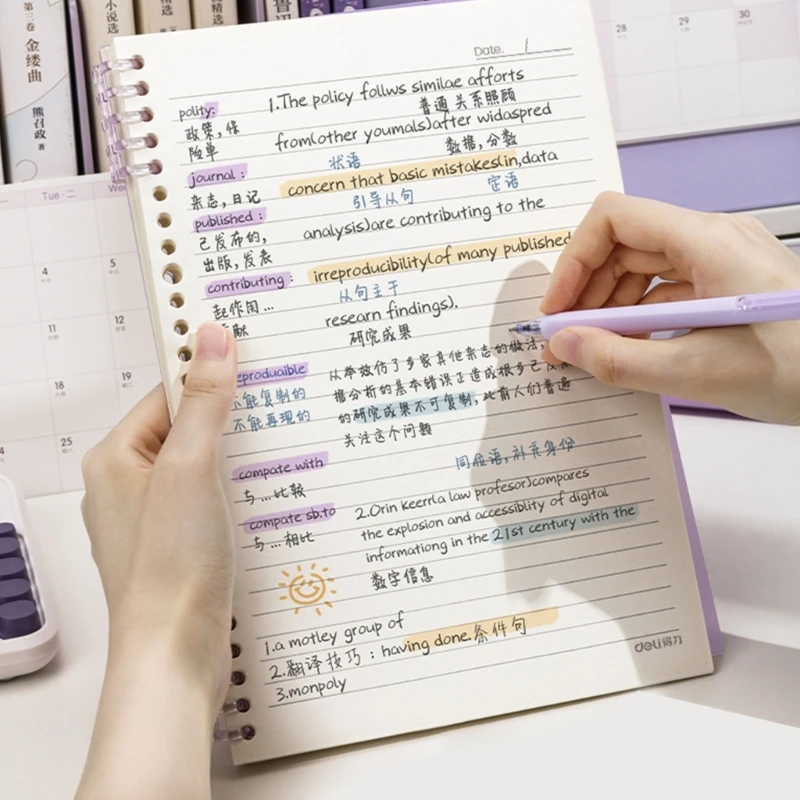 第三卷
金缕曲
熊召政 著
小说选
精选
精选
28
29
30
Tue·二
We
4
5
11
12
18
19
25
Date. /
polity:
政策,保
险单
1.The policy follws similae afforts
普通关系照顾
from(other youmals)after widaspred
状语
数据,分数
journal:
杂志,日记
concern that basic mistakes(in,data
引导从句
定语
published:
已发布的,
出版,发表
analysis)are contributing to the
contributing:
起作用...
献
irreproducibility(of many published
从句主于
researn findings).
研究成果
eproduaible
不能复制的
不能再现的
从举放仿了多家其他杂志的做法,
据分析的基本错误正造成很多已发
的研究成果不可复制,此前人们普遍
关注这个问题
compate with
与...比较
同位语,补充身份
compate sb.to
与...相比
2.Orin keerr(a law profesor)compares
the explosion and accessiblity of digital
informationg in the 21st century with the
数字信息
1.a motley group of
2.翻译技巧:having done.条件句
3.monpoly
deli得力